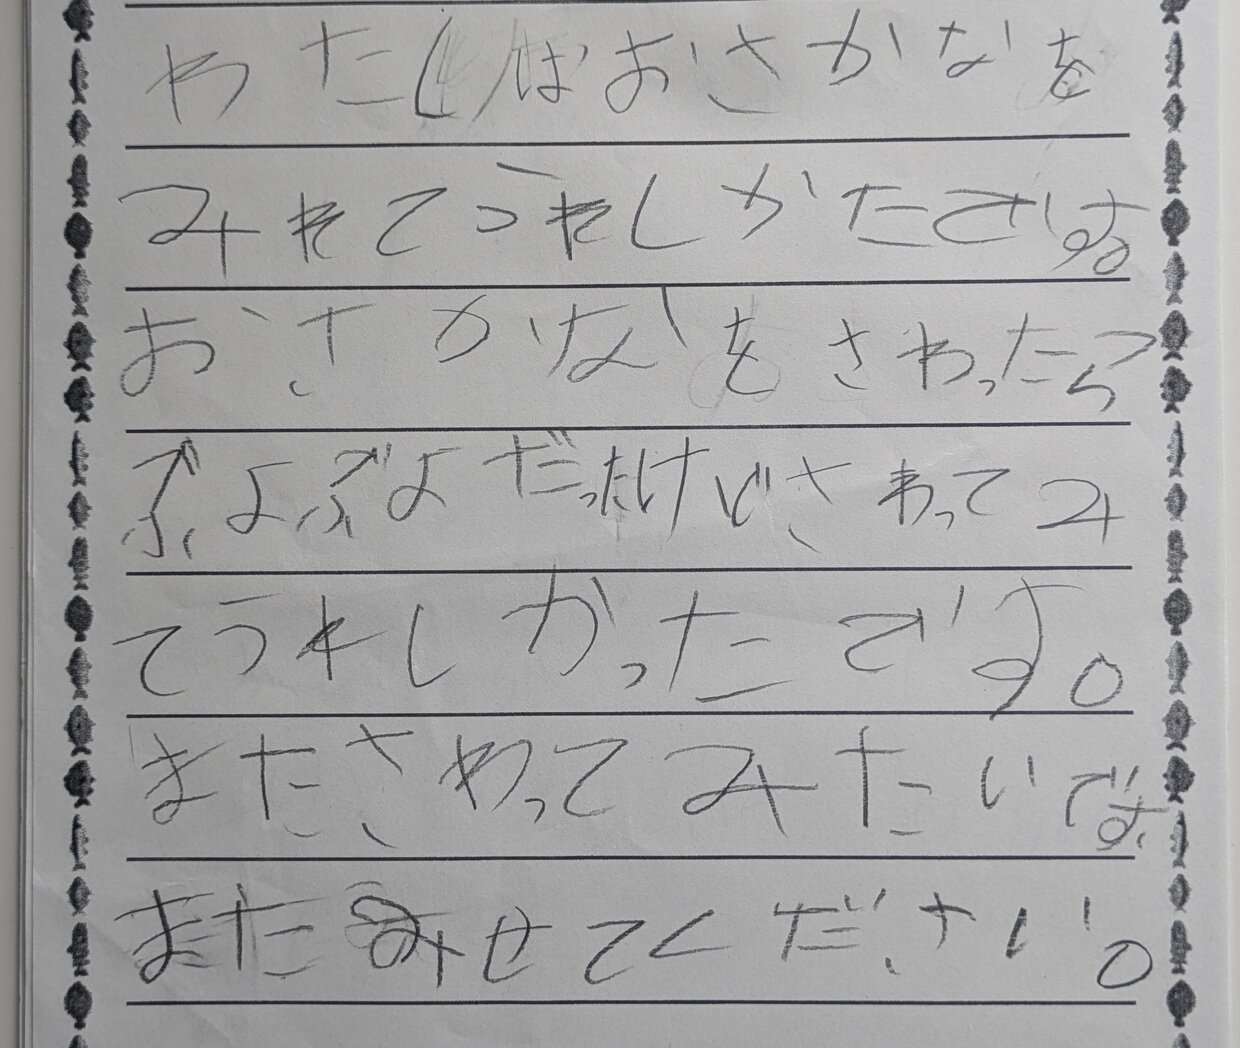 わたしはおさかなを
みれてうれしかたです。
おさかなをさわったら
ぶよぶよだったけどさわってみ
てうれしかったです。
またさわってみたいです。
またみせてください。